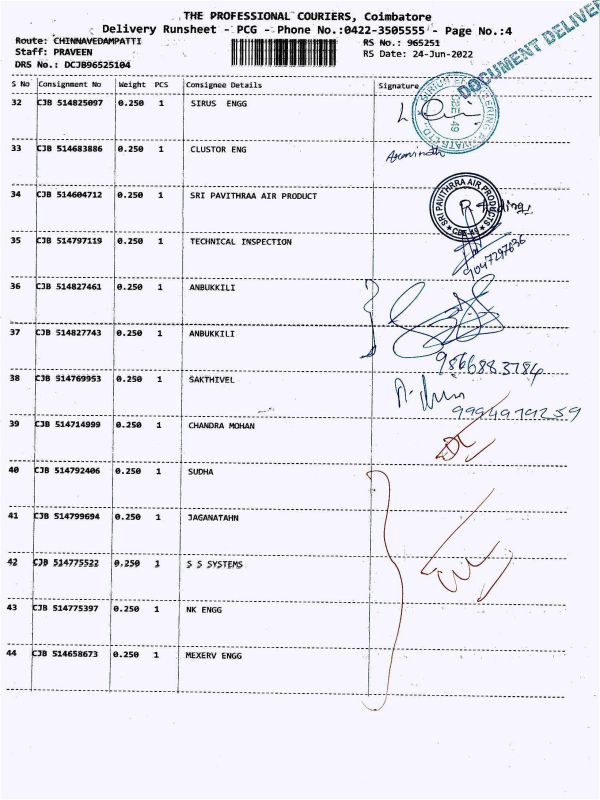 THE PROFESSIONAL COURIERS, Coimbatore
Delivery Runsheet - PCG - Phone No.:0422-3505555 - Page No.:4
Route: CHINNAVEDAMPATTI RS No.: 965251
Staff: PRAVEEN RS Date: 24-Jun-2022
DRS No.: DCJB96525104
DOCUMENT DELIVE
S No Consignment No Weight PCS Consignee Details Signature
32 CJB 514825097 0.250 1 SIRUS ENGG
33 CJB 514683886 0.250 1 CLUSTOR ENG
34 CJB 514604712 0.250 1 SRI PAVITHRAA AIR PRODUCT
SRI PAVITHRRA AIR PRODUCTS
35 CJB 514797119 0.250 1 TECHNICAL INSPECTION
9047297636
36 CJB 514827461 0.250 1 ANBUKKILI
37 CJB 514827743 0.250 1 ANBUKKILI
9866883784
38 CJB 514769953 0.250 1 SAKTHIVEL
9994979259
39 CJB 514714999 0.250 1 CHANDRA MOHAN
40 CJB 514792406 0.250 1 SUDHA
41 CJB 514799694 0.250 1 JAGANATAHN
42 CJB 514775522 0.250 1 S S SYSTEMS
43 CJB 514775397 0.250 1 NK ENGG
44 CJB 514658673 0.250 1 MEXERV ENGG